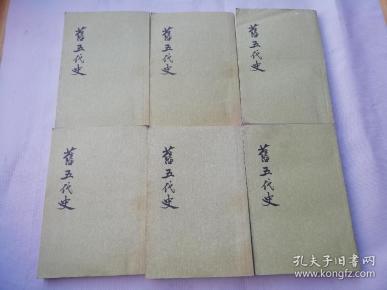 舊五代史
舊五代史
舊五代史
舊五代史
舊五代史
舊五代史
孔夫子旧书网
www.kongfz.com